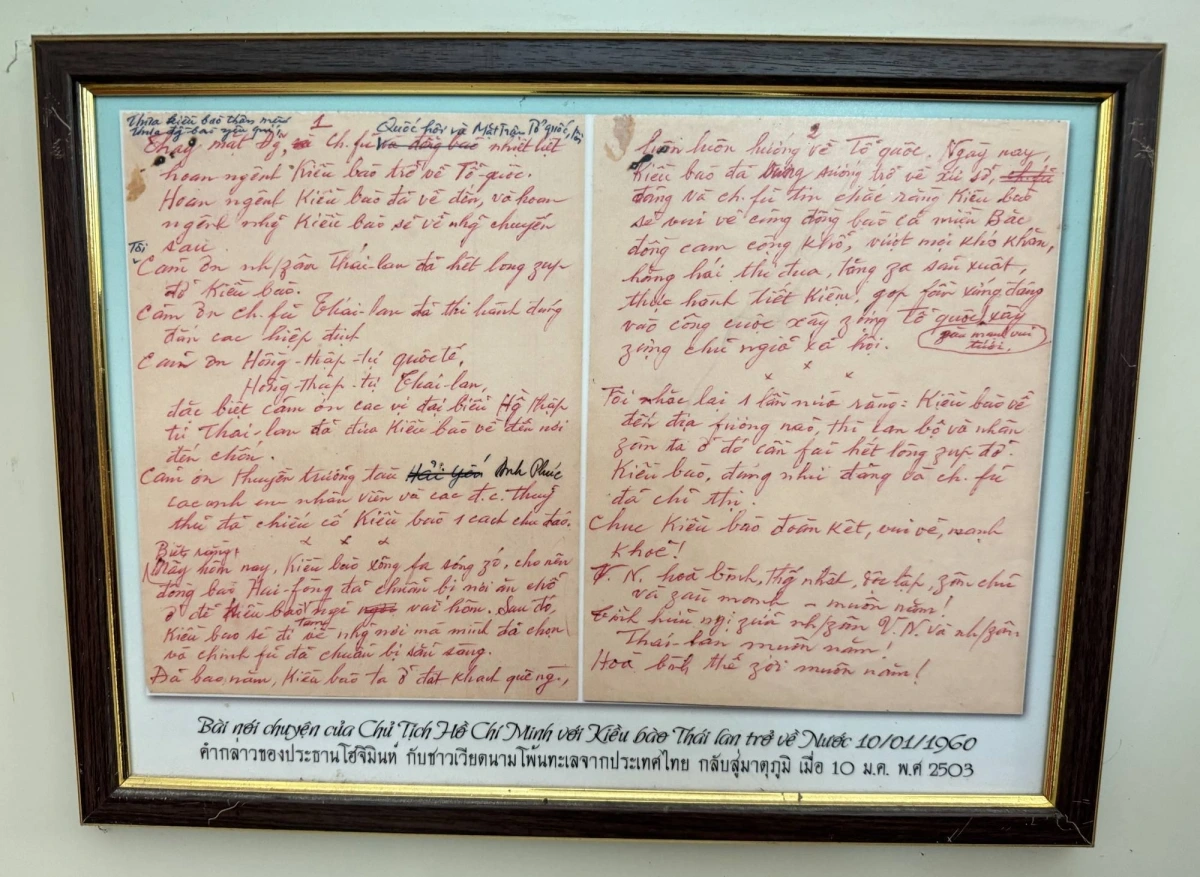 Thưa kiều bào thân mến
Thưa đg-bào yêu quý,
1
Quốc hội và Mặt trận Tổ quốc, tôi
Thay mặt Đg, và ch.fủ và đồng bào nhiệt liệt
hoan ngênh Kiều bào trở về Tổ-quốc.
Hoan ngênh Kiều bào đã về đến, và hoan
ngênh nhg Kiều bào sẽ về nhg chuyến
sau.
Tôi
Cảm ơn nh/zân Thái-lan đã hết lòng zúp
đỡ Kiều bào.
Cảm ơn ch.fủ Thái-lan đã thi hành đúng
đắn các hiệp định
Cảm ơn Hồng-thập-tự quốc tế,
Hồng-thập-tự Thái-lan,
đặc biệt cảm ơn các vị đại biểu Hg thập
tự Thái-lan đã đưa Kiều bào về đến nơi
đến chốn.
Cảm ơn thuyền trưởng tàu Anh Phúc
các anh em nhân viên và các đ.c. thuỷ
thủ đã chiếu cố Kiều bào 1 cách chu đáo.
x x x
Biết rằng
Mấy hôm nay, Kiều bào xông fa sóng zó, cho nên
đồng bào Hải-fòng đã chuẩn bị nơi ăn chỗ
ở để Kiều bào ngỉ vài hôm. Sau đó,
Kiều bào sẽ đi về nhg nơi mà mình đã chọn
và chính fủ đã chuẩn bị sẵn sàng.
Đã bao năm, Kiều bào ta ở đất khách quê ng.,
2
luôn luôn hướng về Tổ quốc. Ngày nay,
Kiều bào đã sung sướng trở về xứ sở, ch.fủ
đảng và ch.fủ tin chắc rằng Kiều bào
sẽ vui vẻ cùng đồng bào cả miền Bắc
đồng cam cộng khổ, vượt mọi khó khăn,
hăng hái thi đua, tăng za sản xuất,
thực hành tiết kiệm, góp fần xứng đáng
vào công cuộc xây zựng Tổ quốc, xây
zựng chủ ngĩa xã hội.
x x x
Tôi nhắc lại 1 lần nữa rằng: Kiều bào về
đến địa fương nào, thì cán bộ và nhân
zân ta ở đó cần fải hết lòng zúp đỡ
Kiều bào, đúng như đảng và ch.fủ
đã chỉ thị.
Chúc Kiều bào đoàn kết, vui vẻ, mạnh
khoẻ!
V.N. hoà bình, thg nhất, độc lập, zân chủ
và zàu mạnh - muôn năm!
Tình hữu ngị zữa nh/zân V.N. và nh/zân
Thái-lan muôn năm!
Hoà bình thế zới muôn năm!
Bài nói chuyện của Chủ Tịch Hồ Chí Minh với Kiều bào Thái lan trở về Nước 10/01/1960
คำกล่าวของประธานโฮจิมินห์ กับชาวเวียดนามโพ้นทะเลจากประเทศไทย กลับสู่มาตุภูมิ เมื่อ 10 ม.ค. พ.ศ 2503